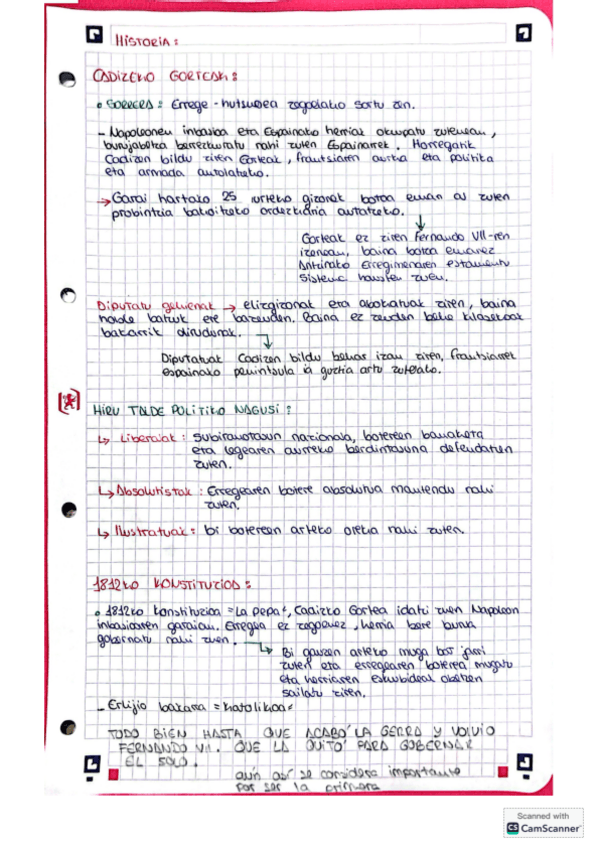 HISTORIA:
CADIZEKO GORTEAK:
SORRERA: Errege-hutsunea zegoelako sortu zen.
- Napoleonen inbasioa eta Espainako herriak okupatu zutenean,
burujabetza berrezkuratu nahi zuten Espainarrek. Horregatik
Cadizen bildu ziren Gorteak, frantsiaren aurka eta politika
eta armada antolatzeko.
→ Garai hartako 25 urteko gizonak botoa eman al zuten
probintzia bakoitzeko ordezkaria autatzeko.
Gorteak ez ziren Fernando VII-ren
izenean, baina botoa emanez
Antzinako Erregimenaren estamentu
sistema hausten zuen.
Diputatu gehienak → elizgizonak eta abokatuak ziren, baina
noble batzuk ere bazeuden. Baina ez zeuden behe klasekoak
bakarrik dirudunak.
Diputatuak Cadizen bildu behar izan ziren, frantsiarrek
espainako penintsula ia guztia artu zutelako.
HIRU TALDE POLITIKO NAGUSI:
↳ Liberalak: Subiranotasun nazionala, botereen banaketa
eta legearen aurreko berdintasuna defendatzen
zuten.
↳ Absolutistak: Erregearen botere absolutua mantendu nahi
zuten.
↳ Ilustratuak: bi botereen arteko oreka nahi zuten.
1812KO KONSTITUZIOA:
1812ko konstituzioa = "La pepa", Cadizko Gortea idatzi zuen Napoleon
inbasioaren garaian. Erregea ez zegoenez, herria bere burua
gobernatu nahi zuen.
Bi gauzen arteko muga bat jarri
zuten eta erregearen boterea mugatu
eta herriaren eskubideak
saiatu ziren.
- Erlijio bakarra = katolikoa
TODO BIEN HASTA QUE ACABÓ LA GERRA Y VOLVIO
FERNANDO VII. QUE LA QUITÓ PARA GOBERNAR
EL SOLO.
aún así se considera importante
por ser la primera
Scanned with
CS CamScanner